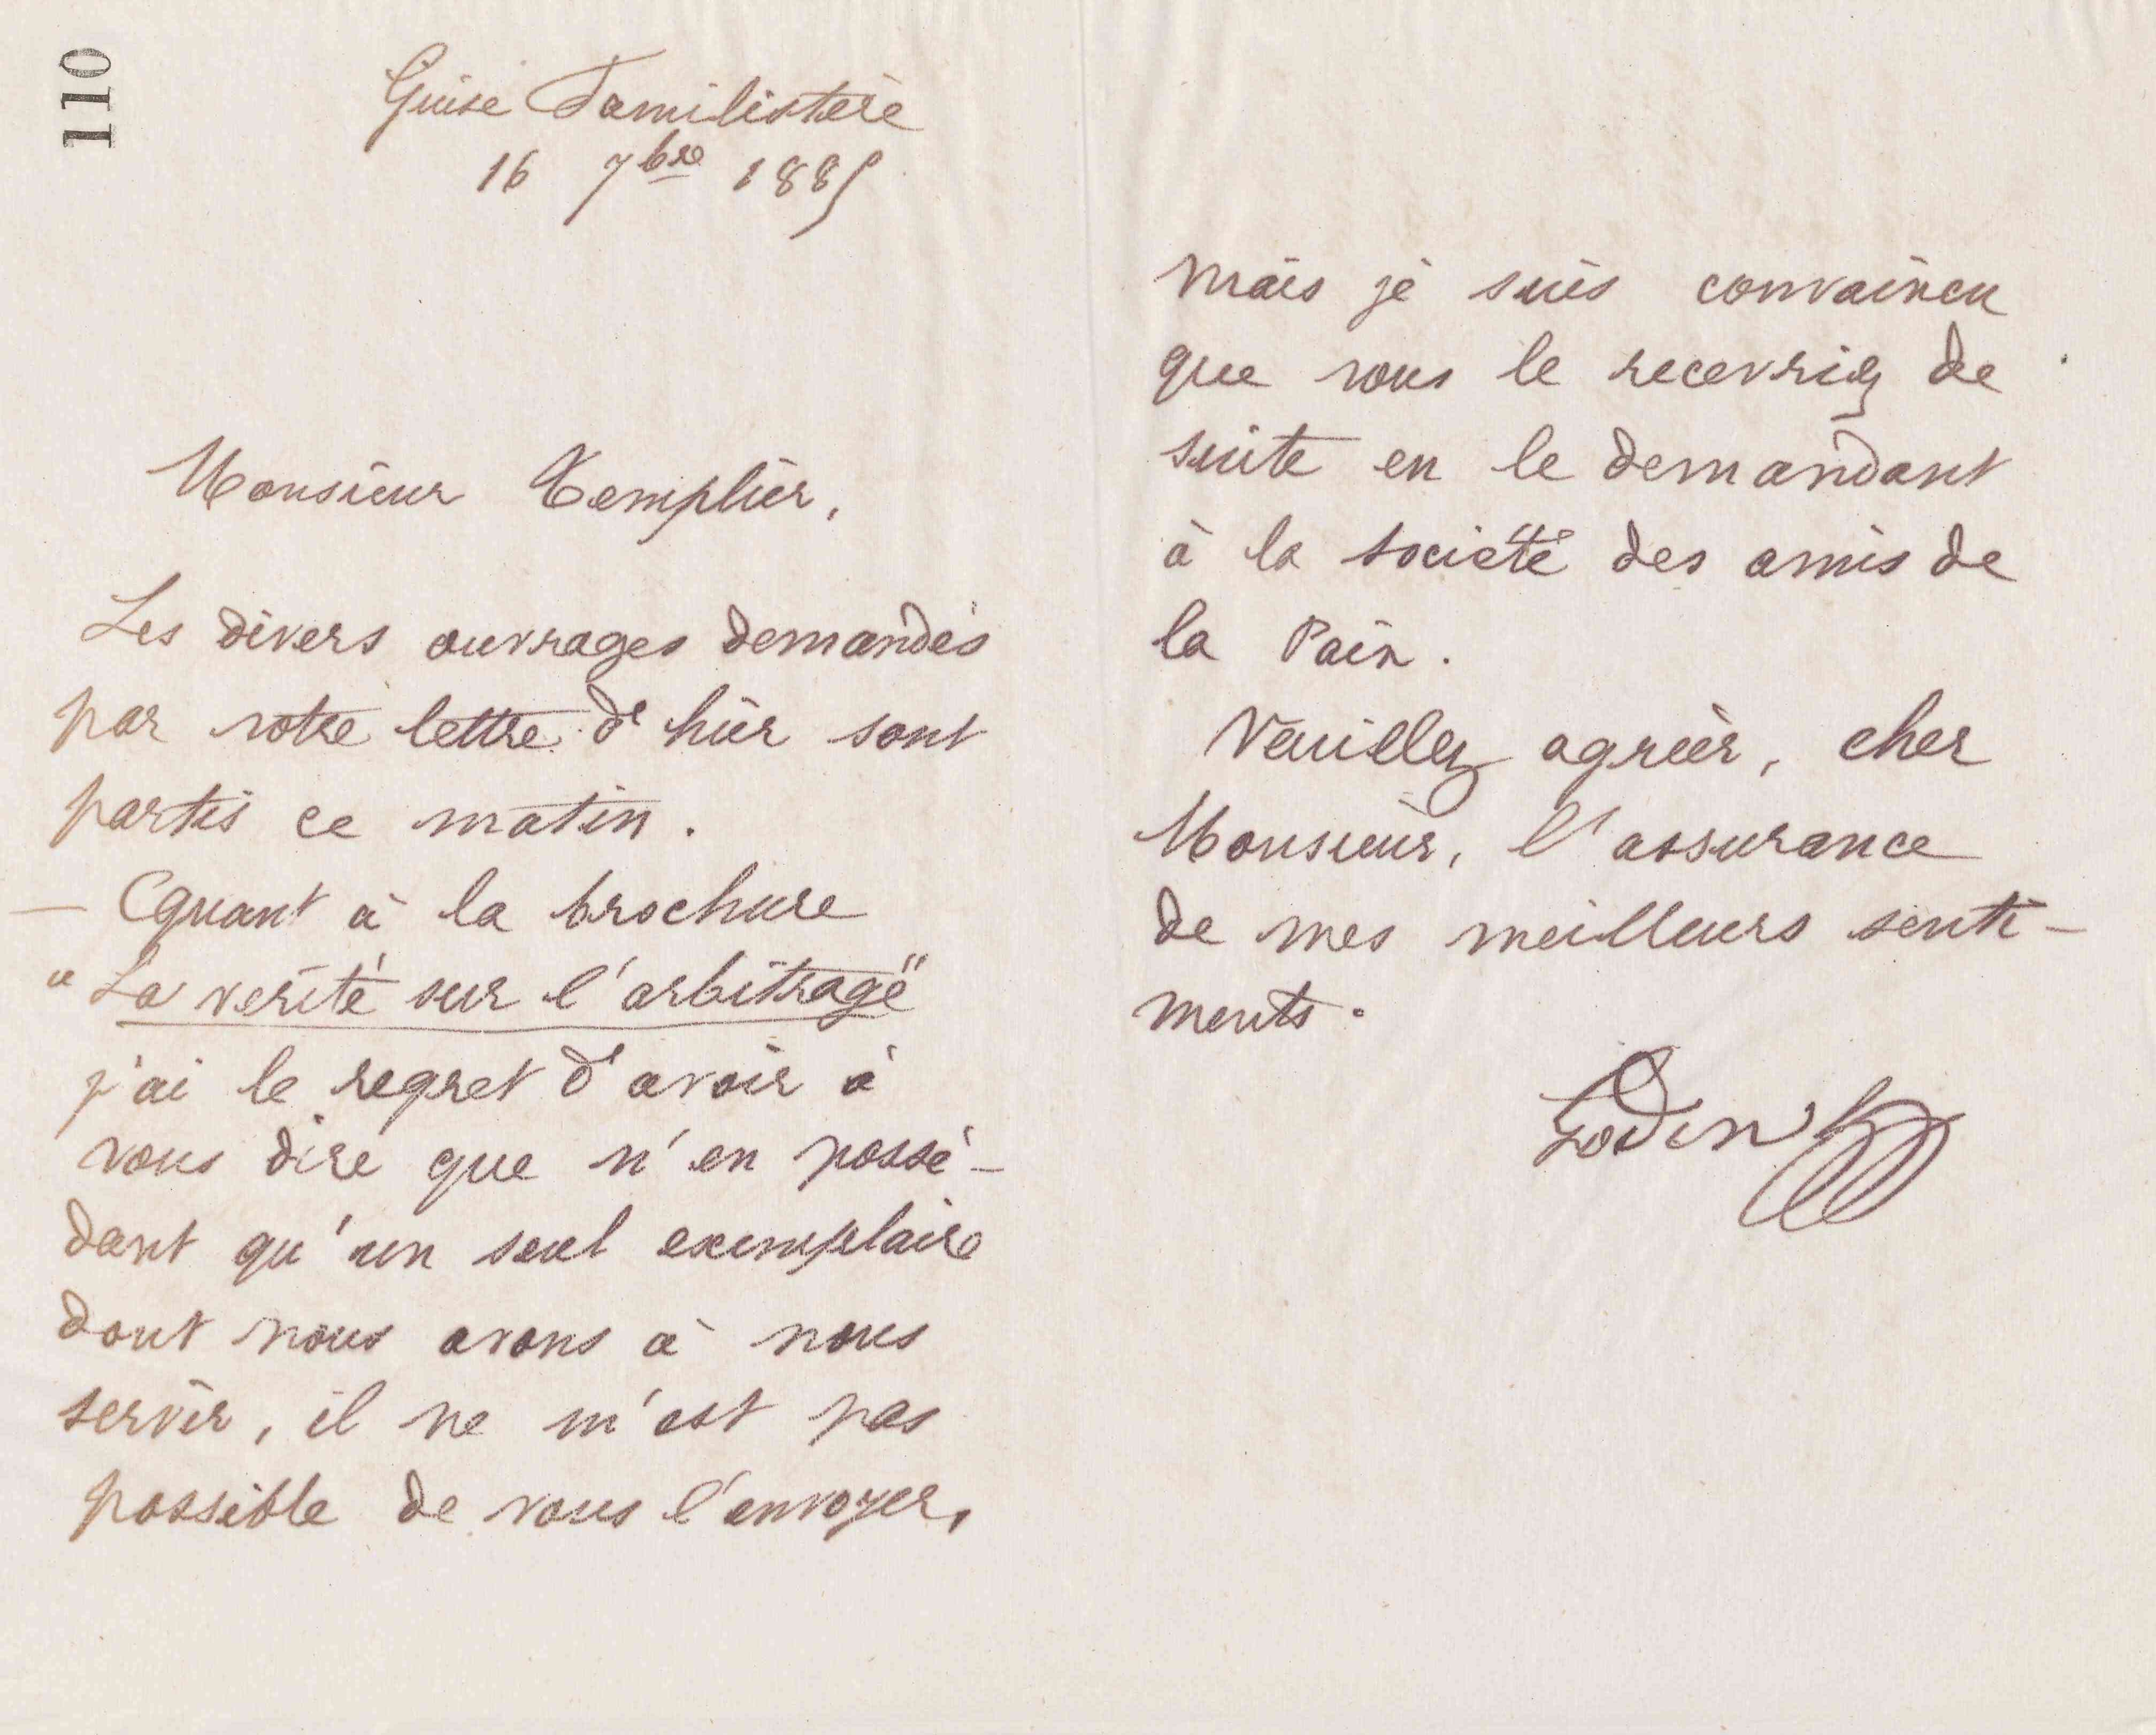 110
Guise Familistère
16 7bre 1885
Monsieur Templier,
Les divers ouvrages demandés
par votre lettre d'hier sont
partis ce matin.
— Quant à la brochure
"La vérité sur l'arbitrage"
j'ai le regret d'avoir à
vous dire que n'en possé-
dant qu'un seul exemplaire
dont nous avons à nous
servir, il ne m'est pas
possible de vous l'envoyer,
mais je suis convaincu
que vous le recevriez de
suite en le demandant
à la société des amis de
la Paix.
Veuillez agréer, cher
Monsieur, l'assurance
de mes meilleurs senti-
ments.
Godin